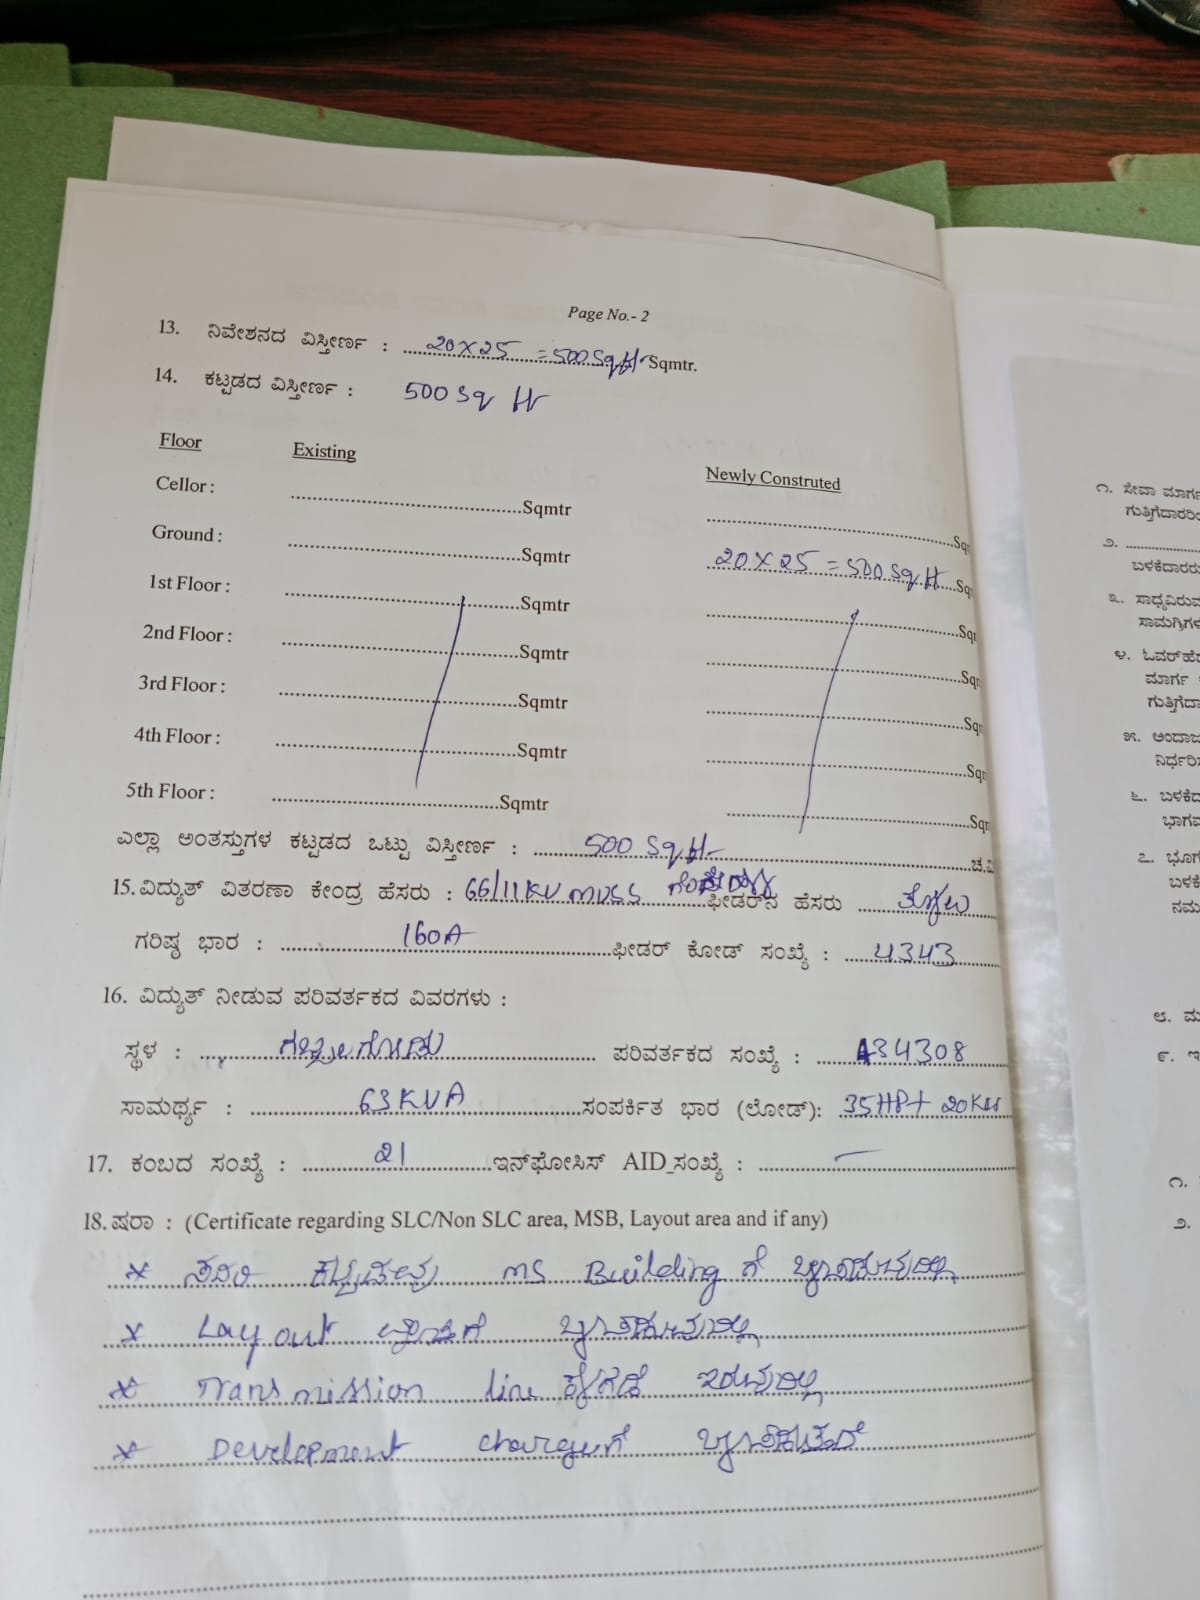 Page No.- 2
13. ನಿವೇಶನದ ವಿಸ್ತೀರ್ಣ : 20 X 25 = 500 Sq ft Sqmtr.
14. ಕಟ್ಟಡದ ವಿಸ್ತೀರ್ಣ : 500 Sq ft
Floor Existing Newly Construted
Cellor : Sqmtr Sq
Ground : Sqmtr 20 X 25 = 500 Sq ft Sq
1st Floor : Sqmtr Sqm
2nd Floor : Sqmtr Sqm
3rd Floor : Sqmtr Sqm
4th Floor : Sqmtr Sqm
5th Floor : Sqmtr Sqm
ಎಲ್ಲಾ ಅಂತಸ್ತುಗಳ ಕಟ್ಟಡದ ಒಟ್ಟು ವಿಸ್ತೀರ್ಣ : 500 Sq ft ಚ.ಮಿ
15. ವಿದ್ಯುತ್ ವಿತರಣಾ ಕೇಂದ್ರ ಹೆಸರು : 66/11KV MUSS ಫೀಡರ್‌ನ ಹೆಸರು
ಗರಿಷ್ಠ ಭಾರ : 160A ಫೀಡರ್ ಕೋಡ್ ಸಂಖ್ಯೆ : 4343
16. ವಿದ್ಯುತ್ ನೀಡುವ ಪರಿವರ್ತಕದ ವಿವರಗಳು :
ಸ್ಥಳ : ಪರಿವರ್ತಕದ ಸಂಖ್ಯೆ : 434308
ಸಾಮರ್ಥ್ಯ : 63KVA ಸಂಪರ್ಕಿತ ಭಾರ (ಲೋಡ್): 35HP+ 20KW
17. ಕಂಬದ ಸಂಖ್ಯೆ : 21 ಇನ್‌ಫೋಸಿಸ್ AID ಸಂಖ್ಯೆ : —
18. ಷರಾ : (Certificate regarding SLC/Non SLC area, MSB, Layout area and if any)
* ಸದರಿ ಕಟ್ಟಡವು MS Building ಗೆ ಬರುವುದಿಲ್ಲ
* Layout ಬರುವುದಿಲ್ಲ
* Transmission line ಕೆಳಗಡೆ ಇರುವುದಿಲ್ಲ
* Development
೧. ಸೇವಾ ಮಾರ್ಗ
ಗುತ್ತಿಗೆದಾರರಿಂ
೨.
ಬಳಕೆದಾರರು
೩. ಸಾಧ್ಯವಿರುವ
ಸಾಮಗ್ರಿಗಳ
೪. ಓವರ್‌ಹೆ
ಮಾರ್ಗ
ಗುತ್ತಿಗೆದಾ
೫. ಅಂದಾಜು
ನಿರ್ಧರಿಸ
೬. ಬಳಕೆದಾ
ಭಾಗವ
೭. ಭೂಗ
ಬಳಕೆ
ನಮ
೮. ಮ
೯. ಇ
೧.
೨.